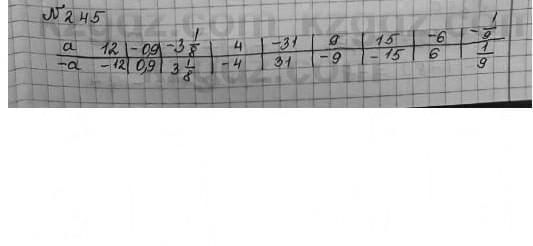 №245
a 12 -0,9 -3 1/8 4 -31 9 15 -6 -1/9
-a -12 0,9 3 1/8 -4 31 -9 -15 6 1/9